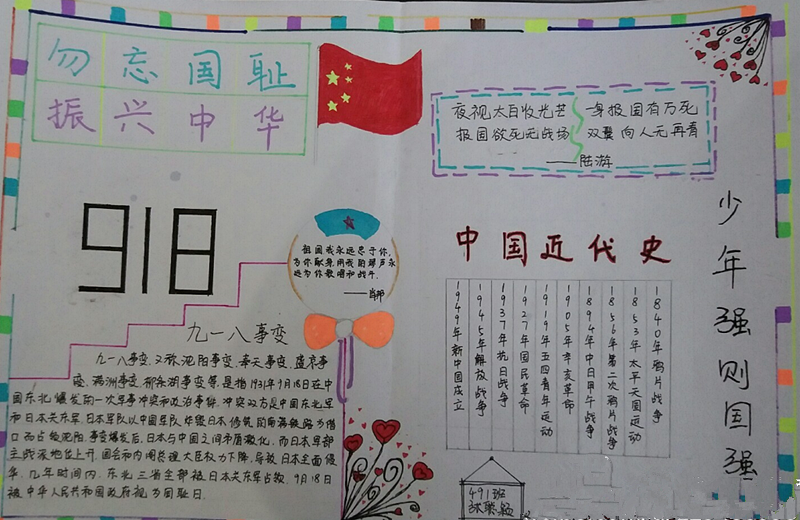 勿忘国耻
振兴中华
918
九一八事变
九一八事变、又称沈阳事变、奉天事变、盛京事
变、满洲事变、柳条湖事变等，是指1931年9月18日在中
国东北爆发的一次军事冲突和政治事件。冲突双方是中国东北军
和日本关东军，日本军队以中国军队炸毁日本修筑的南满铁路为借
口而占领沈阳。事变爆发后，日本与中国之间矛盾激化，而日本军部
主战派地位上升，国会和内阁总理大臣权力下降，导致日本全面侵
华。几年时间内，东北三省全部被日本关东军占领，9月18日
被中华人民共和国政府视为国耻日。
祖国我永远忠于你，
为你献身，用我的琴声永
远为你歌唱和战斗。
——肖邦
夜视太白收光芒 身报国有万死
报国欲死无战场 双鬓向人无再青
——陆游
中国近代史
1840年鸦片战争
1853年太平天国运动
1856年第二次鸦片战争
1894年中日甲午战争
1905年辛亥革命
1919年五四青年运动
1927年国民革命
1937年抗日战争
1945年解放战争
1949年新中国成立
少年强则国强
491班